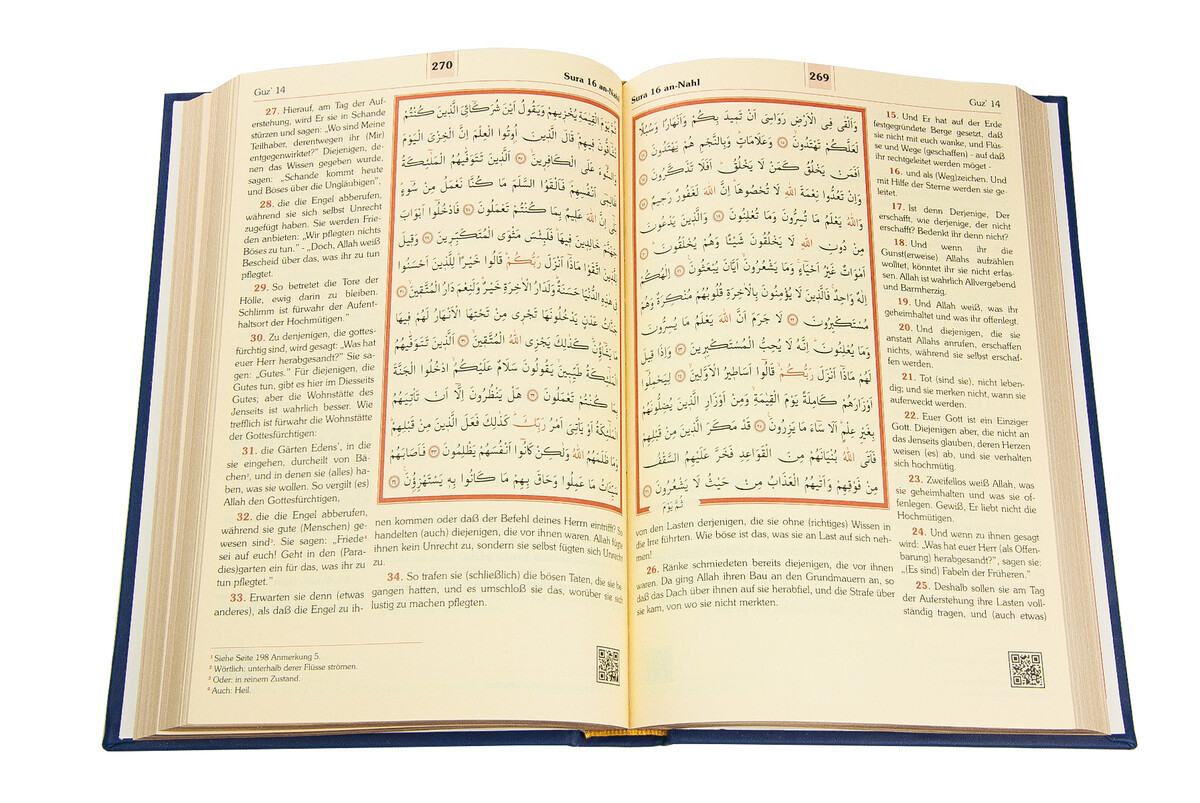 269
Sura 16 an-Nahl
Guz' 14
وَاَلْقٰى فِى الْاَرْضِ رَوَاسِىَ اَنْ تَمِيدَ بِكُمْ وَاَنْهَارًا وَسُبُلًا
لَعَلَّكُمْ تَهْتَدُونَۙ ﴿١٥﴾ وَعَلَامَاتٍۜ وَبِالنَّجْمِ هُمْ يَهْتَدُونَ ﴿١٦﴾
اَفَمَنْ يَخْلُقُ كَمَنْ لَا يَخْلُقُۜ اَفَلَا تَذَكَّرُونَ ﴿١٧﴾
وَاِنْ تَعُدُّوا نِعْمَةَ اللّٰهِ لَا تُحْصُوهَاۜ اِنَّ اللّٰهَ لَغَفُورٌ رَحِيمٌ ﴿١٨﴾
وَاللّٰهُ يَعْلَمُ مَا تُسِرُّونَ وَمَا تُعْلِنُونَ ﴿١٩﴾ وَالَّذِينَ يَدْعُونَ
مِنْ دُونِ اللّٰهِ لَا يَخْلُقُونَ شَيْـًٔا وَهُمْ يُخْلَقُونَۜ ﴿٢٠﴾
اَمْوَاتٌ غَيْرُ اَحْيَٓاءٍۚ وَمَا يَشْعُرُونَۙ اَيَّانَ يُبْعَثُونَ۟ ﴿٢١﴾ اِلٰهُكُمْ
اِلٰهٌ وَاحِدٌۚ فَالَّذِينَ لَا يُؤْمِنُونَ بِالْاٰخِرَةِ قُلُوبُهُمْ مُنْكِرَةٌ وَهُمْ
مُسْتَكْبِرُونَ ﴿٢٢﴾ لَا جَرَمَ اَنَّ اللّٰهَ يَعْلَمُ مَا يُسِرُّونَ
وَمَا يُعْلِنُونَۜ اِنَّهُ لَا يُحِبُّ الْمُسْتَكْبِرِينَ ﴿٢٣﴾ وَاِذَا قِيلَ
لَهُمْ مَاذَٓا اَنْزَلَ رَبُّكُمْۙ قَالُٓوا اَسَاطِيرُ الْاَوَّلِينَۙ ﴿٢٤﴾ لِيَحْمِلُٓوا
اَوْزَارَهُمْ كَامِلَةً يَوْمَ الْقِيٰمَةِۙ وَمِنْ اَوْزَارِ الَّذِينَ يُضِلُّونَهُمْ
بِغَيْرِ عِلْمٍۜ اَلَا سَٓاءَ مَا يَزِرُونَ۟ ﴿٢٥﴾ قَدْ مَكَرَ الَّذِينَ مِنْ قَبْلِهِمْ
فَاَتَى اللّٰهُ بُنْيَانَهُمْ مِنَ الْقَوَاعِدِ فَخَرَّ عَلَيْهِمُ السَّقْفُ
مِنْ فَوْقِهِمْ وَاَتٰيهُمُ الْعَذَابُ مِنْ حَيْثُ لَا يَشْعُرُونَ ﴿٢٦﴾
ثُمَّ يَوْمَ
15. Und Er hat auf der Erde
(festgegründete Berge gesetzt, daß
sie nicht mit euch wanke, und Flüs-
se und Wege (geschaffen) - auf daß
ihr rechtgeleitet werden möget -
16. und als (Weg)zeichen. Und
mit Hilfe der Sterne werden sie ge-
leitet.
17. Ist denn Derjenige, Der
erschafft, wie derjenige, der nicht
erschafft? Bedenkt ihr denn nicht?
18. Und wenn ihr die
Gunst(erweise) Allahs aufzählen
wolltet, könntet ihr sie nicht erfas-
sen. Allah ist wahrlich Allvergebend
und Barmherzig.
19. Und Allah weiß, was ihr
geheimhaltet und was ihr offenlegt.
20. Und diejenigen, die sie
anstatt Allahs anrufen, erschaffen
nichts, während sie selbst erschaf-
fen werden.
21. Tot (sind sie), nicht leben-
dig; und sie merken nicht, wann sie
auferweckt werden.
22. Euer Gott ist ein Einziger
Gott. Diejenigen aber, die nicht an
das Jenseits glauben, deren Herzen
weisen (es) ab, und sie verhalten
sich hochmütig.
23. Zweifellos weiß Allah, was
sie geheimhalten und was sie of-
fenlegen. Gewiß, Er liebt nicht die
Hochmütigen.
24. Und wenn zu ihnen gesagt
wird: „Was hat euer Herr (als Offen-
barung) herabgesandt?", sagen sie:
„(Es sind) Fabeln der Früheren."
25. Deshalb sollen sie am Tag
der Auferstehung ihre Lasten voll-
ständig tragen, und (auch etwas)
von den Lasten derjenigen, die sie ohne (richtiges) Wissen in
die Irre führten. Wie böse ist das, was sie an Last auf sich neh-
men!
26. Ränke schmiedeten bereits diejenigen, die vor ihnen
waren. Da ging Allah ihren Bau an den Grundmauern an, so
daß das Dach über ihnen auf sie herabfiel, und die Strafe über
sie kam, von wo sie nicht merkten.
270
Guz' 14
Sura 16 an-Nahl
ثُمَّ يَوْمَ الْقِيٰمَةِ يُخْزِيهِمْ وَيَقُولُ اَيْنَ شُرَكَٓاءِىَ الَّذِينَ كُنْتُمْ
تُشَٓاقُّونَ فِيهِمْۜ قَالَ الَّذِينَ اُوتُوا الْعِلْمَ اِنَّ الْخِزْىَ الْيَوْمَ
وَالسُّٓوءَ عَلَى الْكَافِرِينَۙ ﴿٢٧﴾ اَلَّذِينَ تَتَوَفّٰيهُمُ الْمَلٰٓئِكَةُ
ظَالِمِٓى اَنْفُسِهِمْۖ فَاَلْقَوُا السَّلَمَ مَا كُنَّا نَعْمَلُ مِنْ سُٓوءٍۜ
بَلٰٓى اِنَّ اللّٰهَ عَلِيمٌ بِمَا كُنْتُمْ تَعْمَلُونَ ﴿٢٨﴾ فَادْخُلُٓوا اَبْوَابَ
جَهَنَّمَ خَالِدِينَ فِيهَاۜ فَلَبِئْسَ مَثْوَى الْمُتَكَبِّرِينَ ﴿٢٩﴾ وَقِيلَ
لِلَّذِينَ اتَّقَوْا مَاذَٓا اَنْزَلَ رَبُّكُمْۜ قَالُوا خَيْرًاۜ لِلَّذِينَ اَحْسَنُوا
فِى هٰذِهِ الدُّنْيَا حَسَنَةٌۜ وَلَدَارُ الْاٰخِرَةِ خَيْرٌۜ وَلَنِعْمَ دَارُ الْمُتَّقِينَۙ ﴿٣٠﴾
جَنَّاتُ عَدْنٍ يَدْخُلُونَهَا تَجْرِى مِنْ تَحْتِهَا الْاَنْهَارُ لَهُمْ فِيهَا
مَا يَشَٓاؤُ۫نَۜ كَذٰلِكَ يَجْزِى اللّٰهُ الْمُتَّقِينَۙ ﴿٣١﴾ اَلَّذِينَ تَتَوَفّٰيهُمُ
الْمَلٰٓئِكَةُ طَيِّبِينَۙ يَقُولُونَ سَلَامٌ عَلَيْكُمُۙ ادْخُلُوا الْجَنَّةَ
بِمَا كُنْتُمْ تَعْمَلُونَ ﴿٣٢﴾ هَلْ يَنْظُرُونَ اِلَّٓا اَنْ تَأْتِيَهُمُ
الْمَلٰٓئِكَةُ اَوْ يَأْتِىَ اَمْرُ رَبِّكَۜ كَذٰلِكَ فَعَلَ الَّذِينَ مِنْ قَبْلِهِمْۜ
وَمَا ظَلَمَهُمُ اللّٰهُ وَلٰكِنْ كَانُٓوا اَنْفُسَهُمْ يَظْلِمُونَ ﴿٣٣﴾ فَاَصَابَهُمْ
سَيِّـَٔاتُ مَا عَمِلُوا وَحَاقَ بِهِمْ مَا كَانُوا بِهِ يَسْتَهْزِؤُ۫نَ۟ ﴿٣٤﴾
27. Hierauf, am Tag der Auf-
erstehung, wird Er sie in Schande
stürzen und sagen: „Wo sind Meine
Teilhaber, derentwegen ihr (Mir)
entgegenwirktet?" Diejenigen, de-
nen das Wissen gegeben wurde,
sagen: „Schande kommt heute
und Böses über die Ungläubigen",
28. die die Engel abberufen,
während sie sich selbst Unrecht
zugefügt haben. Sie werden Frie-
den anbieten: „Wir pflegten nichts
Böses zu tun." - „Doch, Allah weiß
Bescheid über das, was ihr zu tun
pflegtet.
29. So betretet die Tore der
Hölle, ewig darin zu bleiben.
Schlimm ist fürwahr der Aufent-
haltsort der Hochmütigen."
30. Zu denjenigen, die gottes-
fürchtig sind, wird gesagt: „Was hat
euer Herr herabgesandt?" Sie sa-
gen: „Gutes." Für diejenigen, die
Gutes tun, gibt es hier im Diesseits
Gutes; aber die Wohnstätte des
Jenseits ist wahrlich besser. Wie
trefflich ist fürwahr die Wohnstätte
der Gottesfürchtigen:
31. die Gärten Edens¹, in die
sie eingehen, durcheilt von Bä-
chen², und in denen sie (alles) ha-
ben, was sie wollen. So vergilt (es)
Allah den Gottesfürchtigen,
32. die die Engel abberufen,
während sie gute (Menschen) ge-
wesen sind³. Sie sagen: „Friede⁴
sei auf euch! Geht in den (Para-
dies)garten ein für das, was ihr zu
tun pflegtet."
33. Erwarten sie denn (etwas
anderes), als daß die Engel zu ih-
nen kommen oder daß der Befehl deines Herrn eintrifft? So
handelten (auch) diejenigen, die vor ihnen waren. Allah fügte
ihnen kein Unrecht zu, sondern sie selbst fügten sich Unrecht
zu.
34. So trafen sie (schließlich) die bösen Taten, die sie be-
gangen hatten, und es umschloß sie das, worüber sie sich
lustig zu machen pflegten.
¹ Siehe Seite 198 Anmerkung 5.
² Wörtlich: unterhalb derer Flüsse strömen.
³ Oder: in reinem Zustand.
⁴ Auch: Heil.